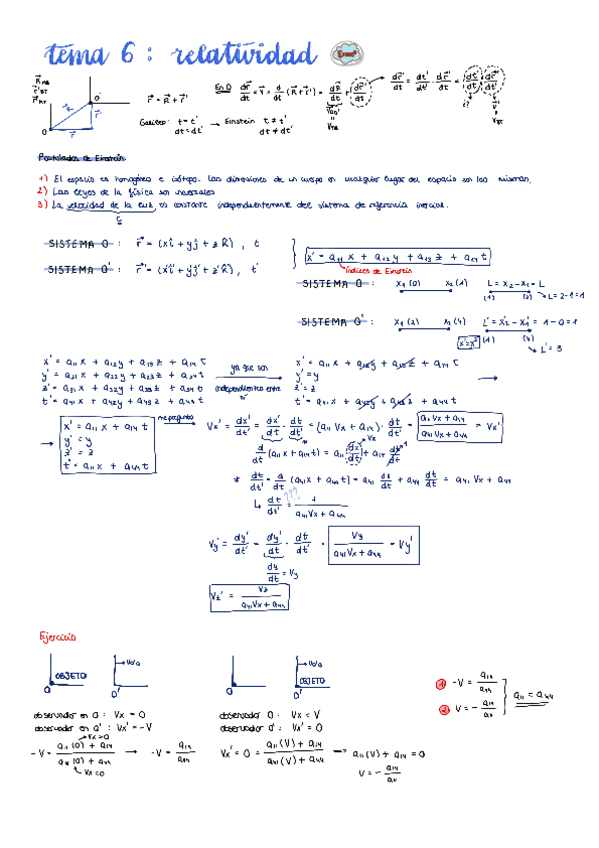 tema 6 : relatividad
r⃗ = R⃗ + r⃗'
En O dr⃗/dt = v⃗ = d/dt (R⃗ + r⃗') = dR⃗/dt + dr⃗'/dt
dr⃗'/dt = dt'/dt · dr⃗'/dt' = dt'/dt dr⃗'/dt'
Galileo: t = t' → Einstein t ≠ t'
dt = dt' dt ≠ dt'
Postulados de Einstein
1) El espacio es homogéneo e isótopo. Las dimensiones de un cuerpo en cualquier lugar del espacio son las mismas.
2) Las leyes de la física son universales
3) La velocidad de la luz es constante independientemente del sistema de referencia inercial.
c
SISTEMA O : r⃗ = (xi + yj + zk), t
SISTEMA O' : r⃗' = (x'i' + y'j' + z'k'), t'
x' = a11 x + a12 y + a13 z + a14 t
índices de Einstein
SISTEMA O : x1 (0) x2 (1) L = x2 - x1 = L
(1) (2) → L = 2-1 = 1
SISTEMA O' : x1 (2) x2 (4) L' = x2' - x1' = 1 - 0 = 1
(1) (4) → L' = 3
x' = a11 x + a12 y + a13 z + a14 t
y' = a21 x + a22 y + a23 z + a24 t
z' = a31 x + a32 y + a33 z + a34 t
t' = a41 x + a42 y + a43 z + a44 t
ya que son
independientes entre sí
x' = a11 x + a12 y + a13 z + a14 t
y' = y
z' = z
t' = a41 x + a42 y + a43 z + a44 t
x' = a11 x + a14 t
y' = y
z' = z
t' = a41 x + a44 t
me pregunto
Vx' = dx'/dt' = dx'/dt · dt/dt' = (a11 Vx + a14) · dt/dt' = (a11 Vx + a14)/(a41 Vx + a44) = Vx'
d/dt (a11 x + a14 t) = a11 dx/dt + a14 dt/dt
* dt'/dt = d/dt (a41 x + a44 t) = a41 dx/dt + a44 dt/dt = a41 Vx + a44
↳ dt/dt' = 1/(a41 Vx + a44)
???
Vy' = dy'/dt' = dy'/dt · dt/dt' = Vy/(a41 Vx + a44) = Vy'
dy/dt = Vy
Vz' = Vz/(a41 Vx + a44)
Ejercicio
OBJETO
O O'
OBJETO
O O'
observador en O : Vx = 0
observador en O' : Vx' = -V
Vx = 0
-V = (a11 (0) + a14)/(a41 (0) + a44) → -V = a14/a44
Vx = 0
observador O : Vx = V
observador O' : Vx' = 0
Vx' = 0 = (a11 (V) + a14)/(a41 (V) + a44) → a11 (V) + a14 = 0
V = - a14/a11
1 -V = a14/a44
2 V = - a14/a11
a11 = a44